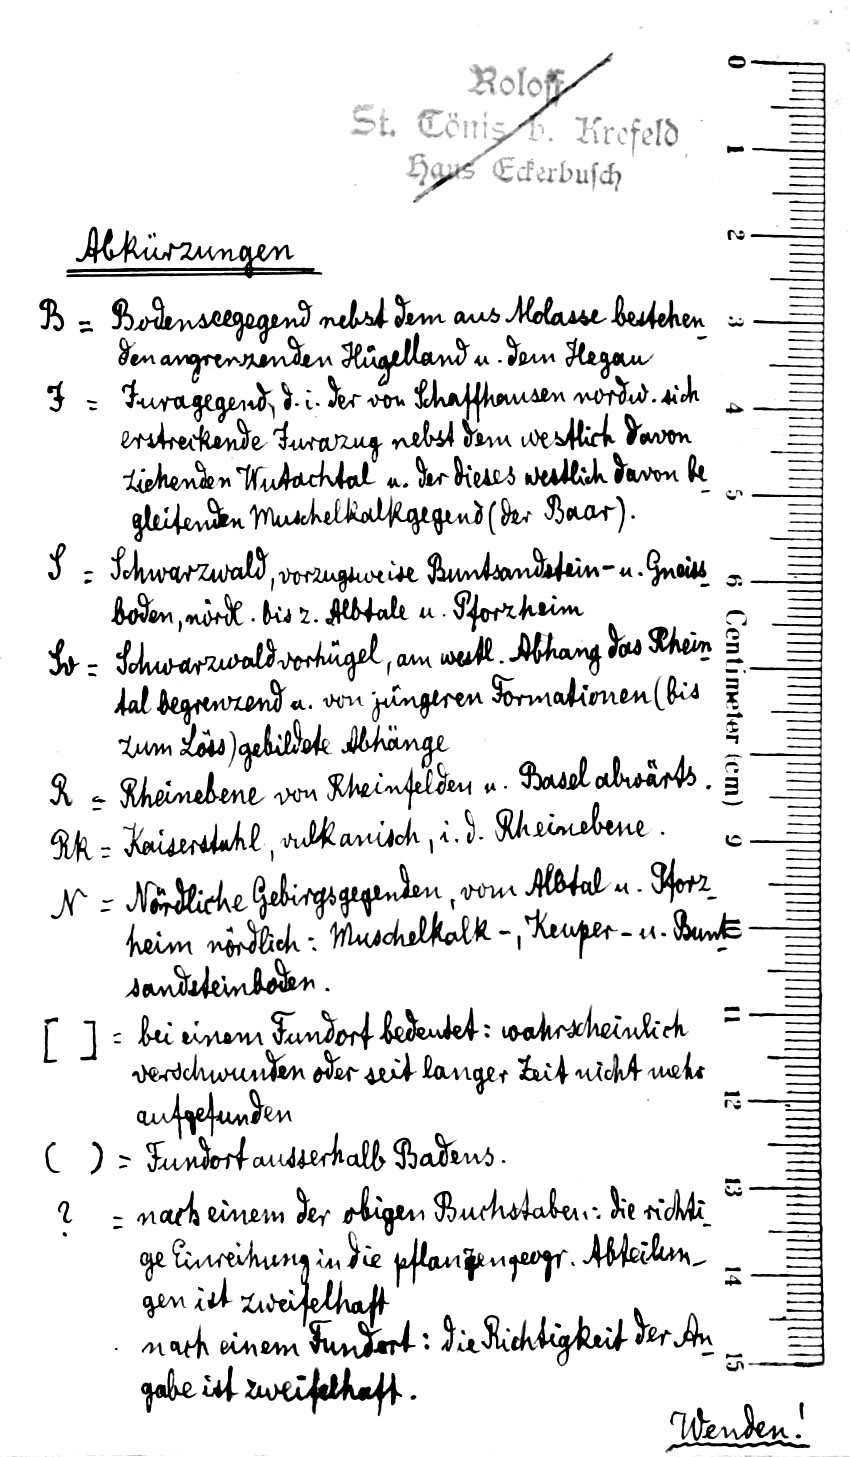 Roloff
St. Tönis b. Krefeld
Haus Eckerbusch
Abkürzungen
B = Bodenseegegend nebst dem aus Molasse bestehen-
den angrenzenden Hügelland u. dem Hegau
J = Juragegend, d. i. der von Schaffhausen nordw. sich
erstreckende Jurazug nebst dem westlich davon
ziehenden Wutachtal u. der dieses westlich davon be-
gleitenden Muschelkalkgegend (der Baar).
S = Schwarzwald, vorzugsweise Buntsandstein- u. Gneiss-
boden, nördl. bis z. Albtale u. Pforzheim
Sv = Schwarzwaldvorhügel, am westl. Abhang das Rhein-
tal begrenzend u. von jüngeren Formationen (bis
zum Löss) gebildete Abhänge
R = Rheinebene von Rheinfelden u. Basel abwärts.
Rk = Kaiserstuhl, vulkanisch, i. d. Rheinebene.
N = Nördliche Gebirgsgegenden, vom Albtal u. Pforz-
heim nördlich: Muschelkalk-, Keuper- u. Bunt-
sandsteinboden.
[ ] = bei einem Fundort bedeutet: wahrscheinlich
verschwunden oder seit langer Zeit nicht mehr
aufgefunden
( ) = Fundort ausserhalb Badens.
? = nach einem der obigen Buchstaben: die richti-
ge Einreihung in die pflanzengeogr. Abteilun-
gen ist zweifelhaft
nach einem Fundort: die Richtigkeit der An-
gabe ist zweifelhaft.
Wenden!
0
1
2
3
4
5
6
Centimeter (cm)
9
10
11
12
13
14
15